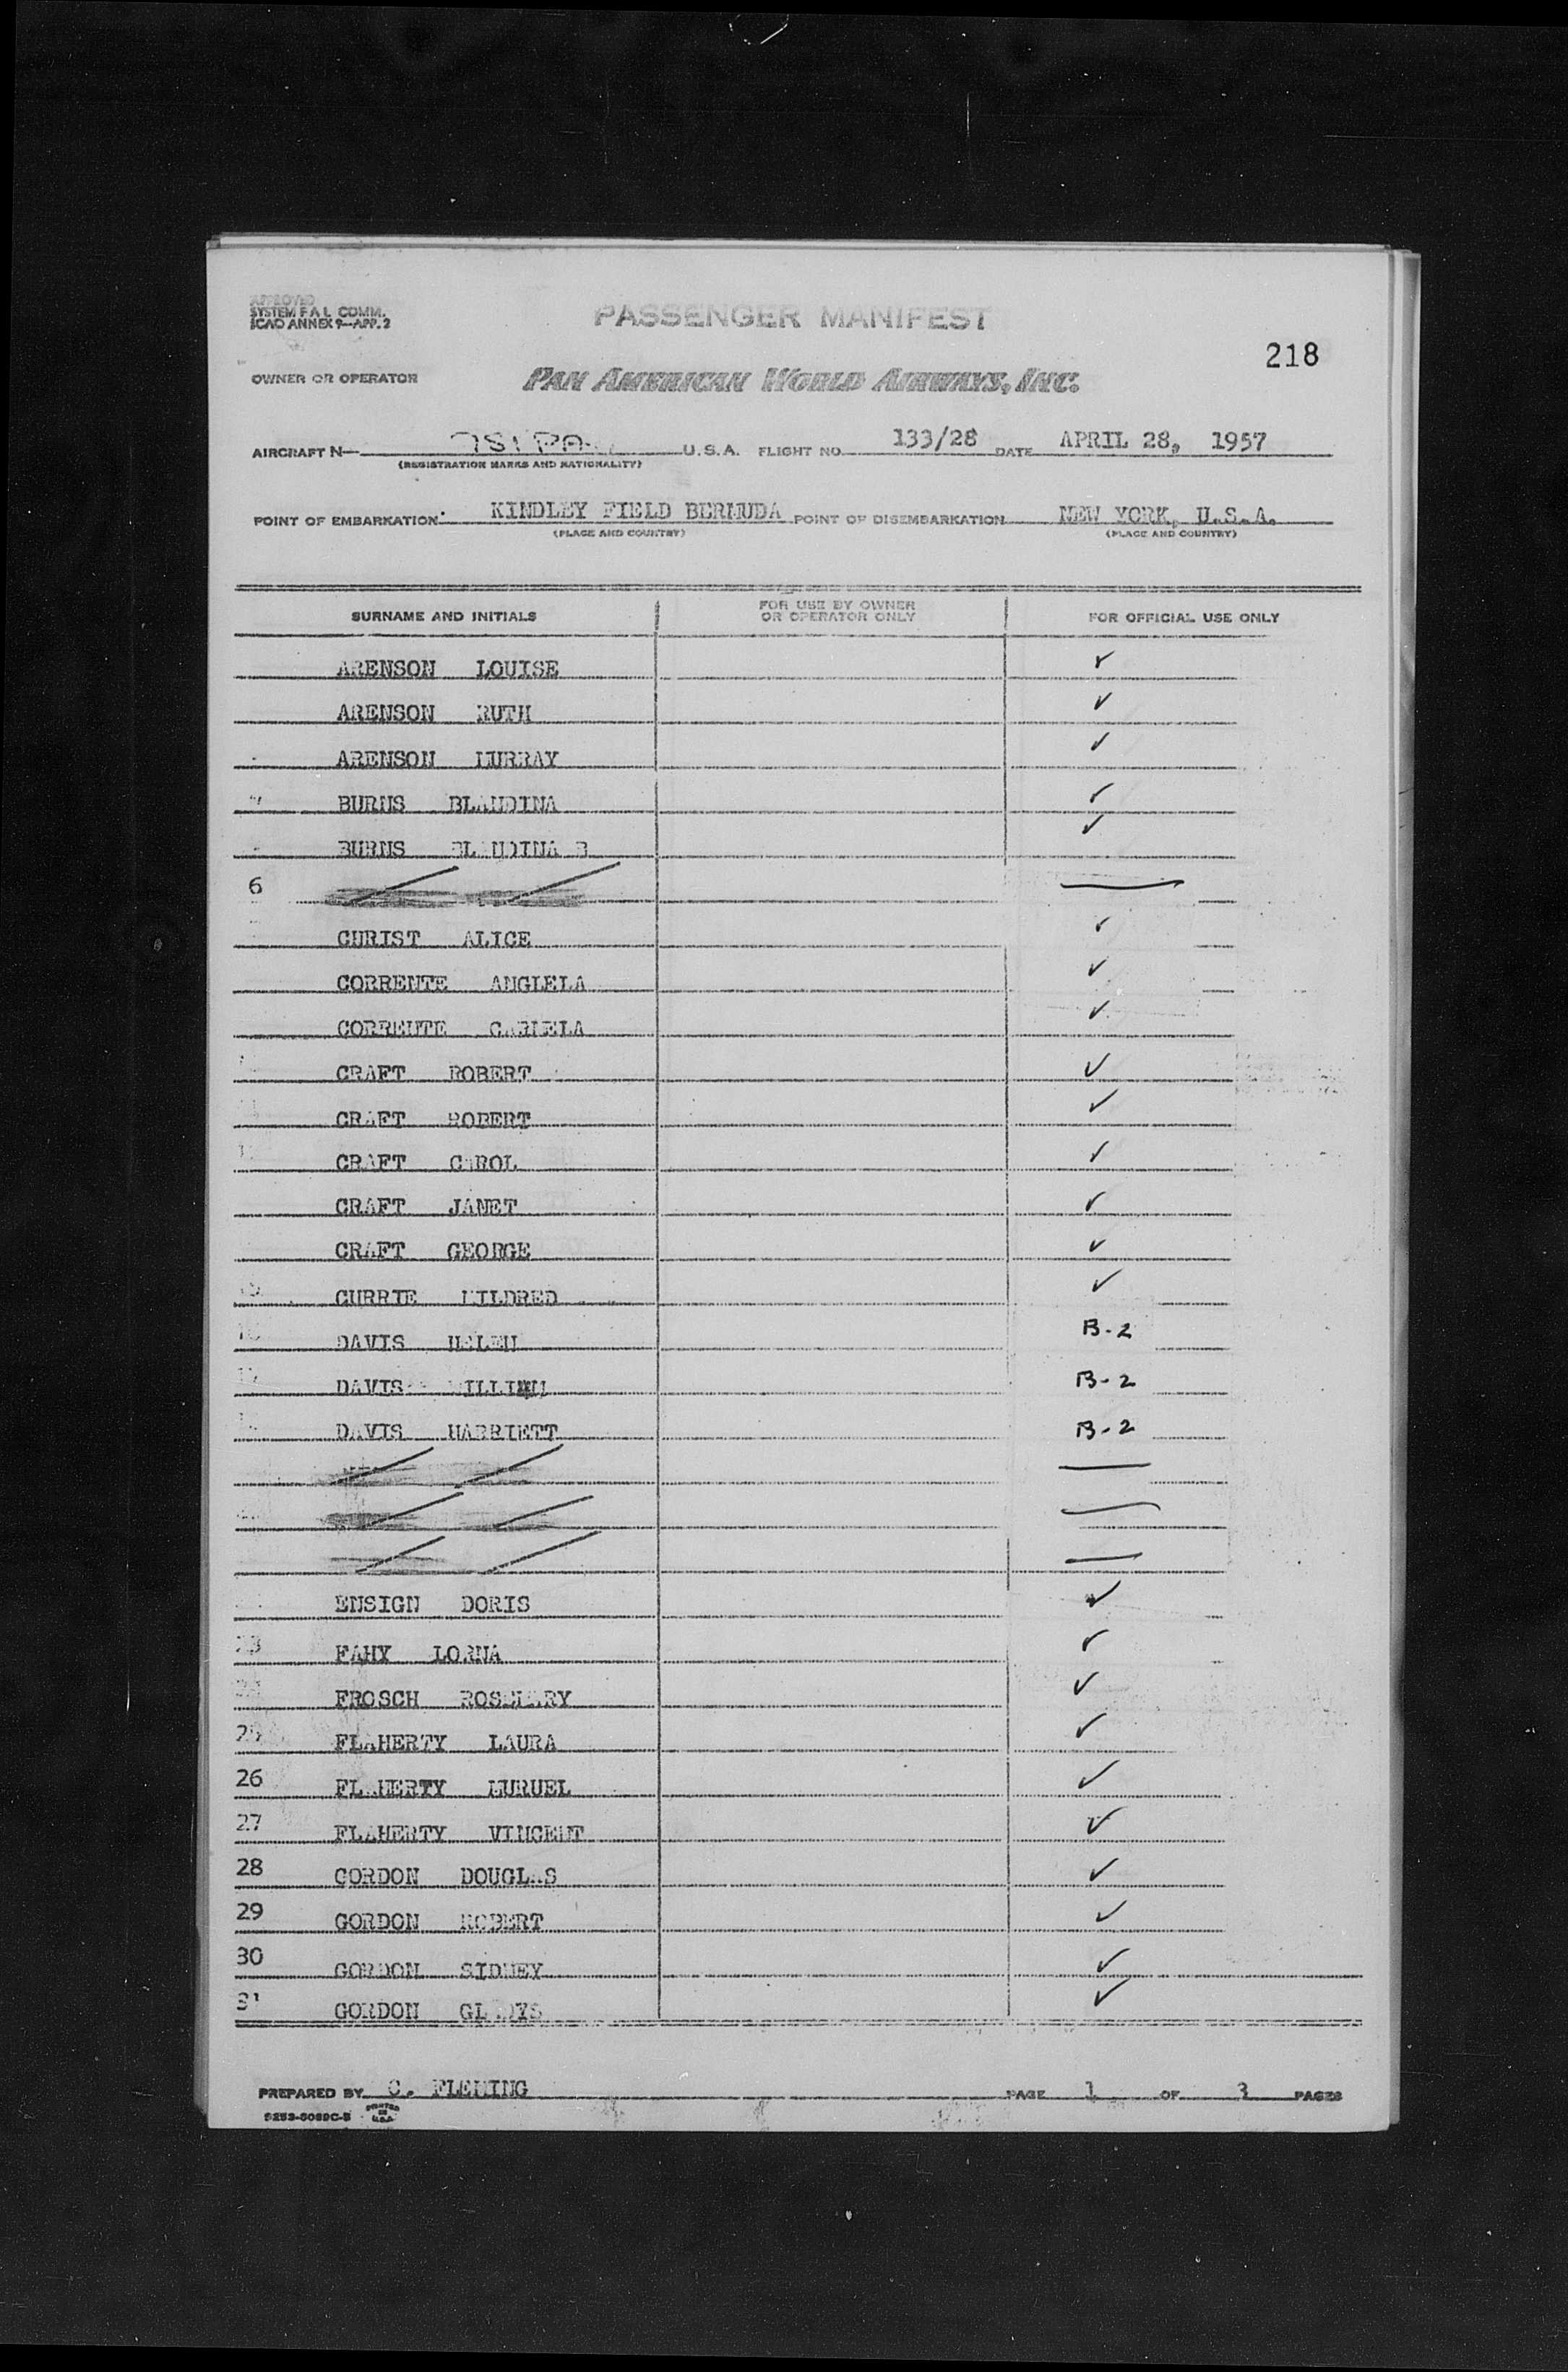 APPROVED
SYSTEM F A L COMM.
ICAO ANNEX 9—APP. 2
PASSENGER MANIFEST
218
OWNER OR OPERATOR PAN AMERICAN WORLD AIRWAYS, INC.
AIRCRAFT N— U.S.A. FLIGHT NO. 133/28 DATE APRIL 28, 1957
(REGISTRATION MARKS AND NATIONALITY)
POINT OF EMBARKATION KINDLEY FIELD BERMUDA POINT OF DISEMBARKATION NEW YORK, U.S.A.
(PLACE AND COUNTRY) (PLACE AND COUNTRY)
SURNAME AND INITIALS FOR USE BY OWNER OR OPERATOR ONLY FOR OFFICIAL USE ONLY
ARENSON LOUISE ✓
ARENSON RUTH ✓
ARENSON MURRAY ✓
BURNS BLANDINA ✓
BURNS BLANDINA B ✓
6
CHRIST ALICE ✓
CORRENTE ANGIELA ✓
CORRENTE ✓
CRAFT ROBERT ✓
CRAFT ROBERT ✓
CRAFT CAROL ✓
CRAFT JANET ✓
CRAFT GEORGE ✓
CURRIE MILDRED ✓
DAVIS HELEN B-2
DAVIS B-2
DAVIS HARRIETT B-2
ENSIGN DORIS ✓
23 FAHY LORNA ✓
FROSCH ROSEMARY ✓
25 FLAHERTY LAURA ✓
26 FLAHERTY MURUEL ✓
27 FLAHERTY VINCENT ✓
28 GORDON DOUGLAS ✓
29 GORDON ROBERT ✓
30 GORDON SIDNEY ✓
31 GORDON GLADYS ✓
PREPARED BY C. FLEMING PAGE 1 OF 3 PAGES
PRINTED IN U.S.A.